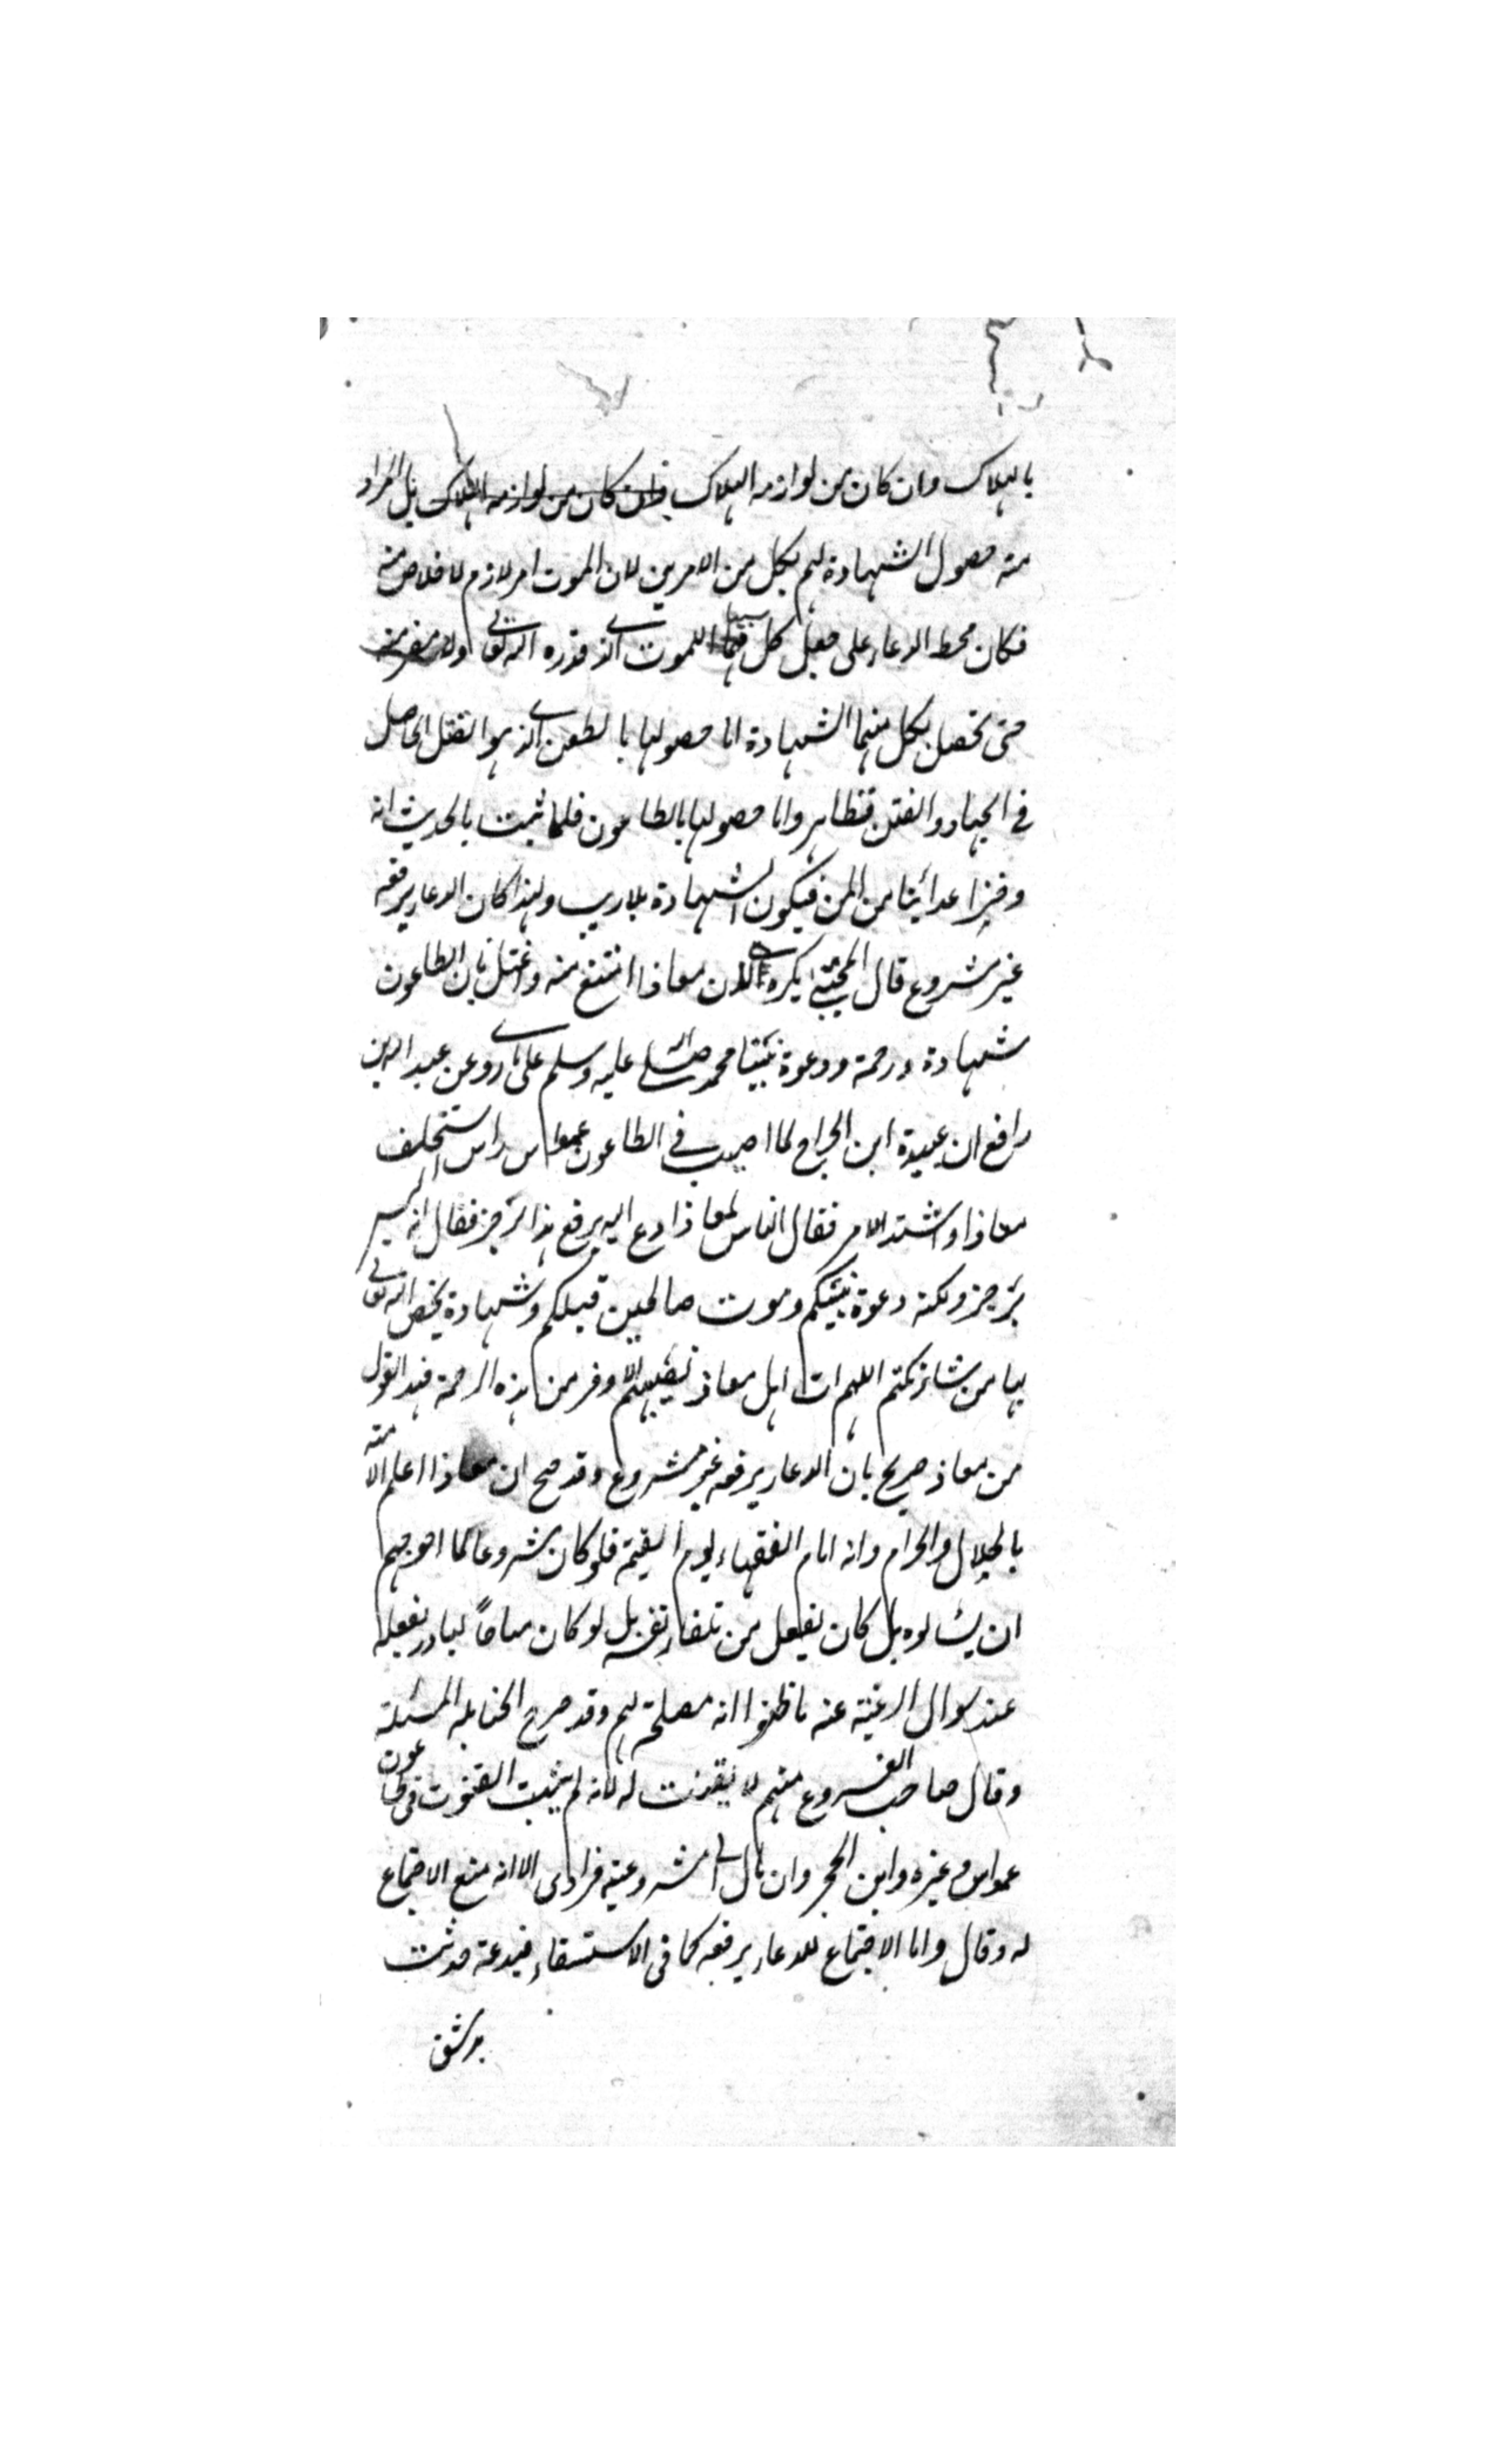 بالهلاك وان كان من لوازمه الهلاك فان كان من لوازمه الهلاك بل المراد
منه حصول الشهادة لهم بكل من الامرين لان الموت امر لازم لا خلاص منه
فكان محط الدعاء على جعل كل منهما سببا للموت الذى قدره الله تعالى ولا مفر منه
حتى تحصل بكل منهما الشهادة اما حصولها بالطعن الذى هو القتل الحاصل
فى الجهاد والفتن فظاهر واما حصولها بالطاعون فلما ثبت بالحديث انه
وخز اعدائنا من الجن فيكون الشهادة بلا ريب ولهذا كان الدعاء برفعه
غير مشروع قال المجتبى يكره لان معاذا امتنع منه واعتل بان الطاعون
شهادة ورحمة ودعوة نبينا محمد صلى الله عليه وسلم على ما روى عن عبد الله بن
رافع ان عبيدة ابن الجراح لما اصيب فى الطاعون عمواس راس استخلف
معاذا واشتد الامر فقال الناس لمعاذ ادع الله يرفع هذا الرجز فقال انه ليس
برجز ولكنه دعوة نبيكم وموت صالحين قبلكم وشهادة يخص الله تعالى
بها من شاء منكم اللهم ات اهل معاذ نصيبهم الاوفر من هذه الرحمة فهذا القول
من معاذ صريح بان الدعاء برفعه غير مشروع وقد صح ان معاذا اعلم الامته
بالحلال والحرام وانه امام الفقهاء يوم القيمة فلو كان مشروعا لما احوجهم
ان يسالوه بل كان يفعل من تلقاء نفسه بل لو كان مباحاً لبادر بفعله
عند سوال الرعية عنه ما ظنوا انه مصلحة لهم وقد صرح الحنابله المسئلة
وقال صاحب الفروع منهم لا يقنت له لانه لم يثبت القنوت فى طاعون
عمواس وغيره وابن الحجر وان مال الى مشروعيته فرادى الا انه منع الاجتماع
له وقال واما الاجتماع للدعاء برفعه كما فى الاستسقاء فبدعة حدثت
بدمشق